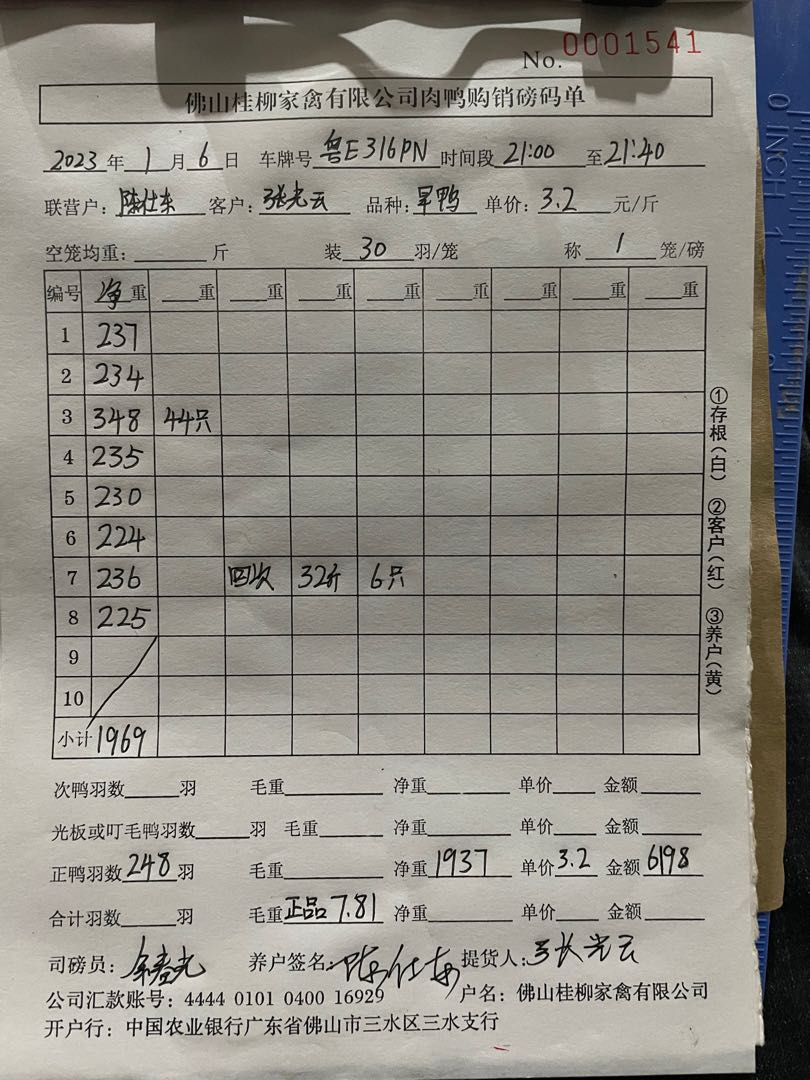 No. 0001541
佛山桂柳家禽有限公司肉鸭购销磅码单
2023年1月6日 车牌号粤E316PN 时间段21:00至21:40
联营户:陈仕东 客户:张光云 品种:旱鸭 单价:3.2元/斤
空笼均重:______斤 装30羽/笼 称1笼/磅
编号 净重 ___重 ___重 ___重 ___重 ___重 ___重 ___重 ___重
1 237
2 234
3 348 44只
4 235
5 230
6 224
7 236 回次 32斤 6只
8 225
9
10
小计 1969
①存根(白) ②客户(红) ③养户(黄)
次鸭羽数____羽 毛重____ 净重____ 单价____ 金额____
光板或叮毛鸭羽数____羽 毛重____ 净重____ 单价____ 金额____
正鸭羽数248羽 毛重____ 净重1937 单价3.2 金额6198
合计羽数____羽 毛重正品7.81 净重____ 单价____ 金额____
司磅员: 养户签名:陈仕东 提货人:张光云
公司汇款账号:4444 0101 0400 16929 户名:佛山桂柳家禽有限公司
开户行:中国农业银行广东省佛山市三水区三水支行
0 INCH 1